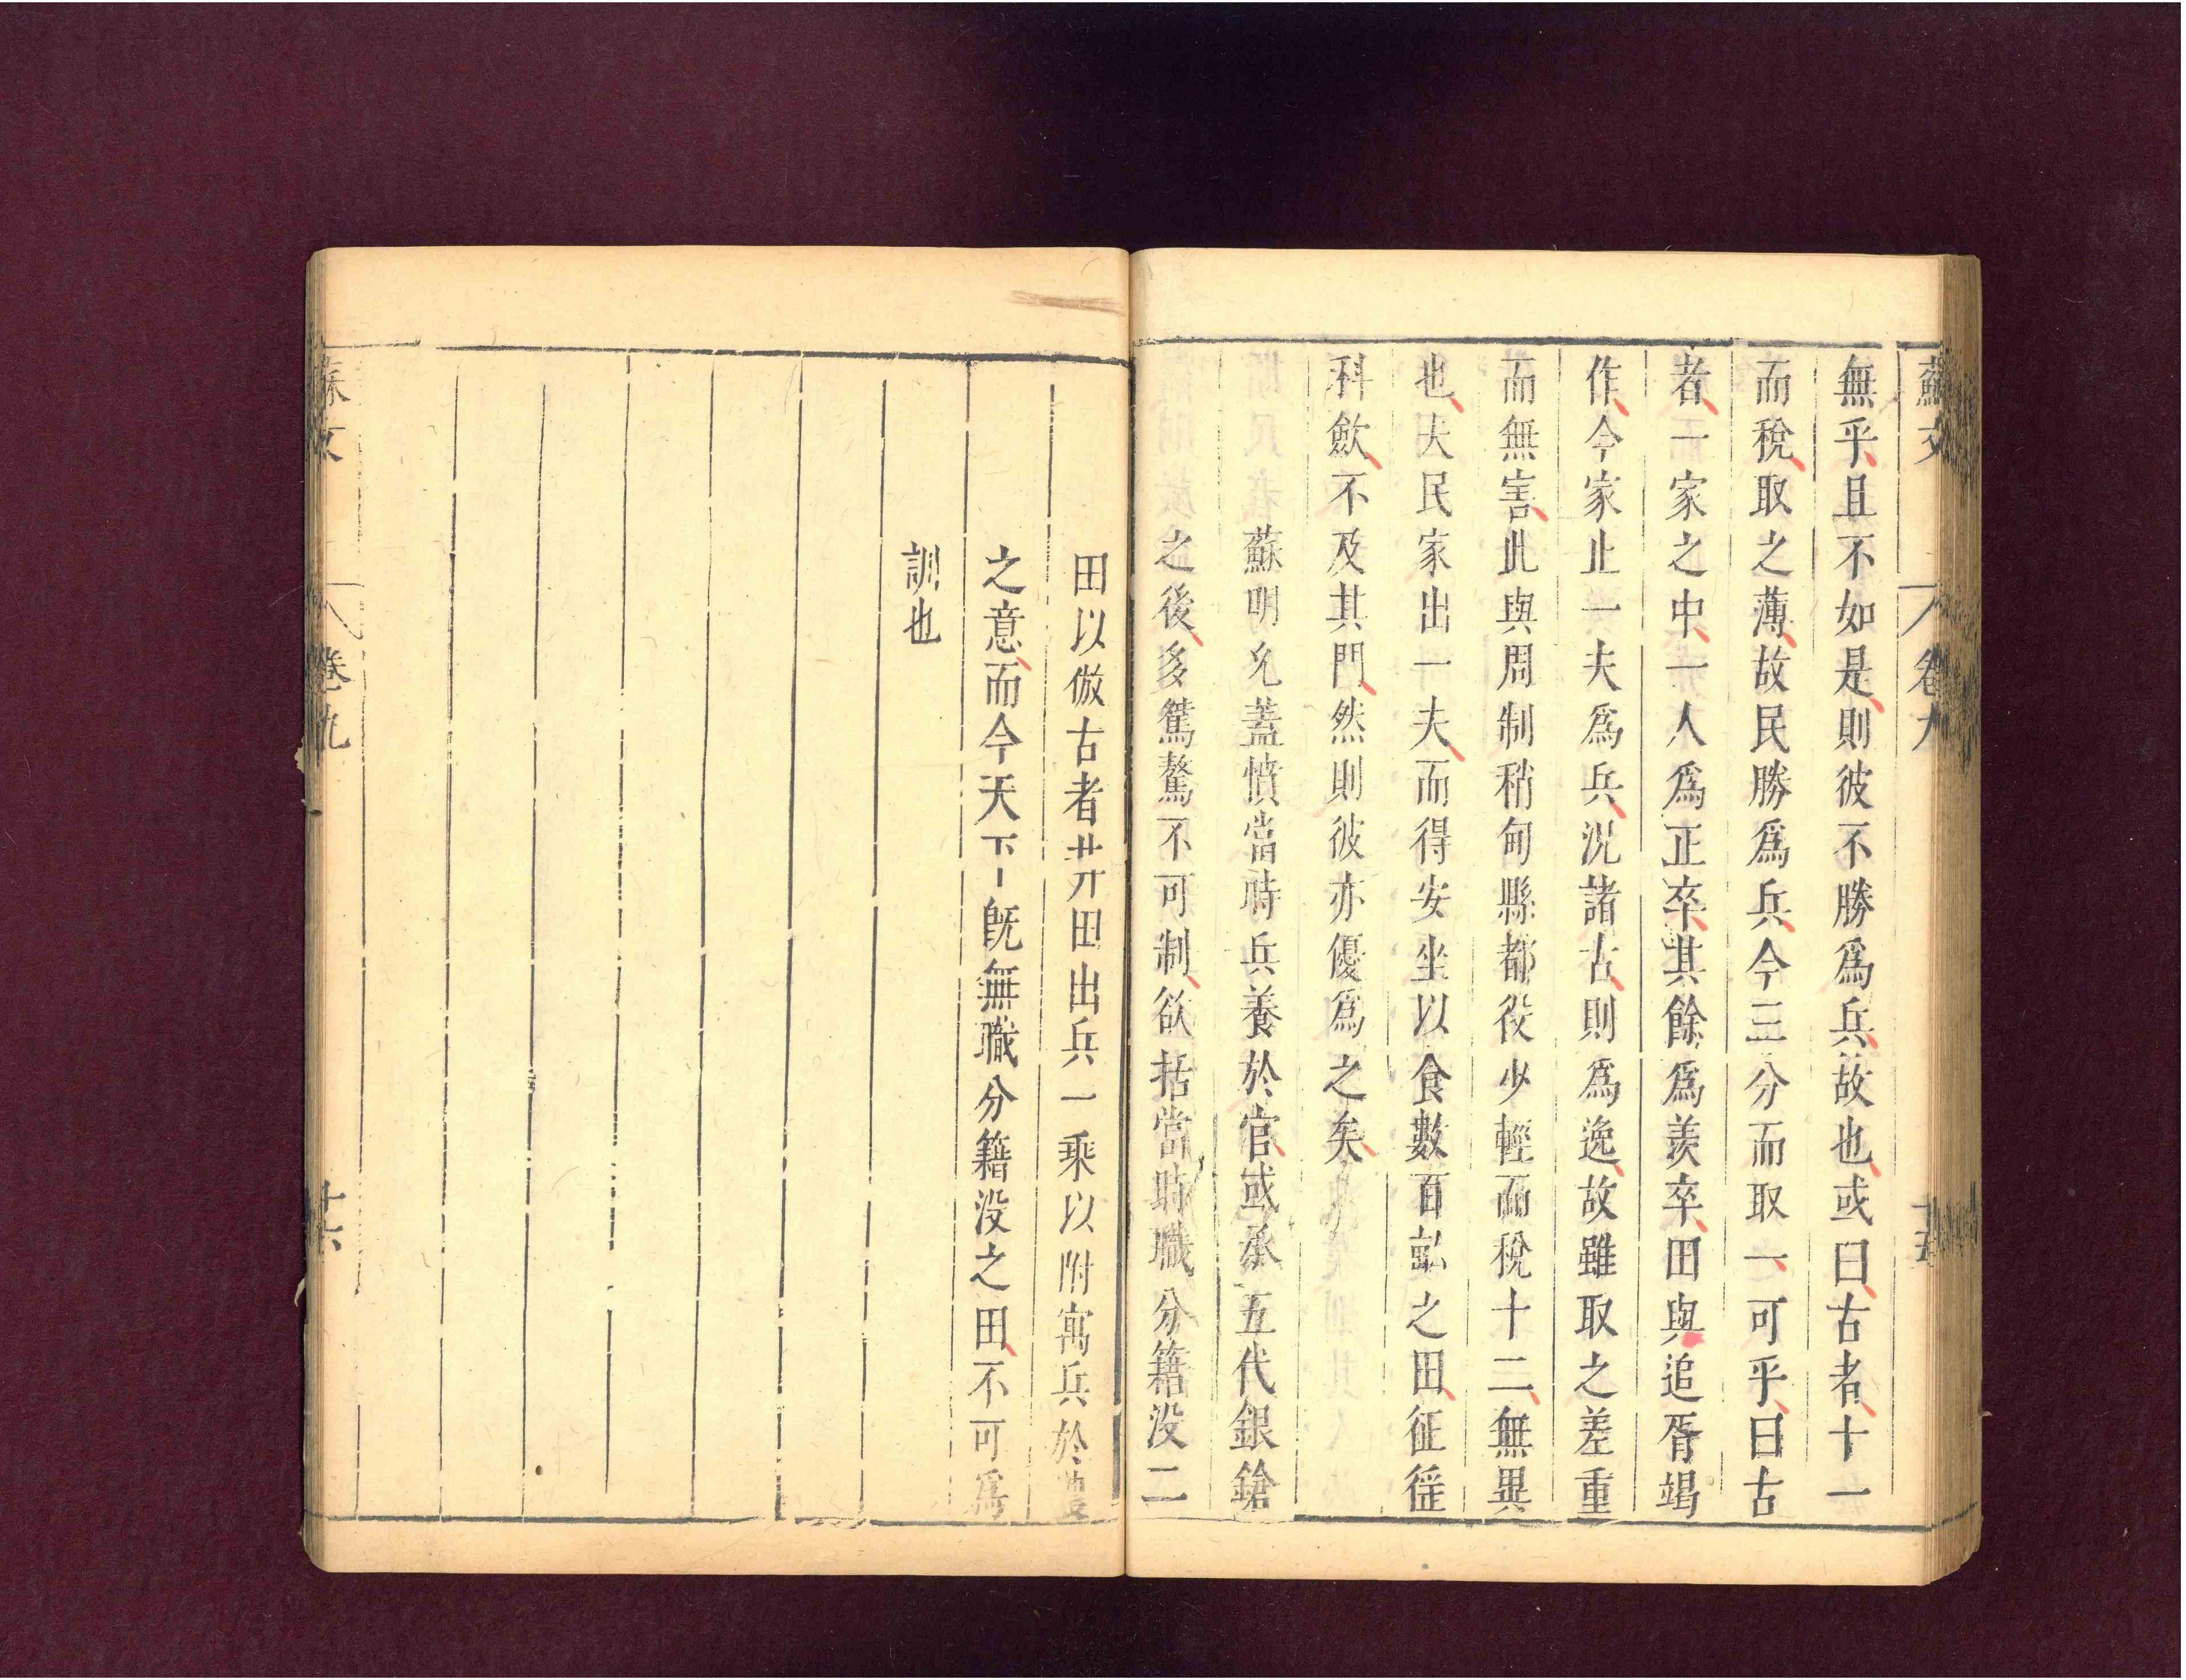 蘇文 卷九 十五
無乎且不如是則彼不勝爲兵故也或曰古者十一
而稅取之薄故民勝爲兵今三分而取一可乎曰古
者一家之中一人爲正卒其餘爲羨卒田與追胥竭
作今家止一夫爲兵況諸古則爲逸故雖取之差重
而無害此與周制稍甸縣都役少輕而稅十二無異
也夫民家出一夫而得安坐以食數百畝之田征徭
科斂不及其門然則彼亦優爲之矣
蘇明允蓋憤當時兵養於官或承五代銀鎗
之後多驁驁不可制欲括當時職分籍没二
田以倣古者井田出兵一乘以附寓兵於農
之意而今天下既無職分籍没之田不可爲
訓也
蘇文 卷九 十六